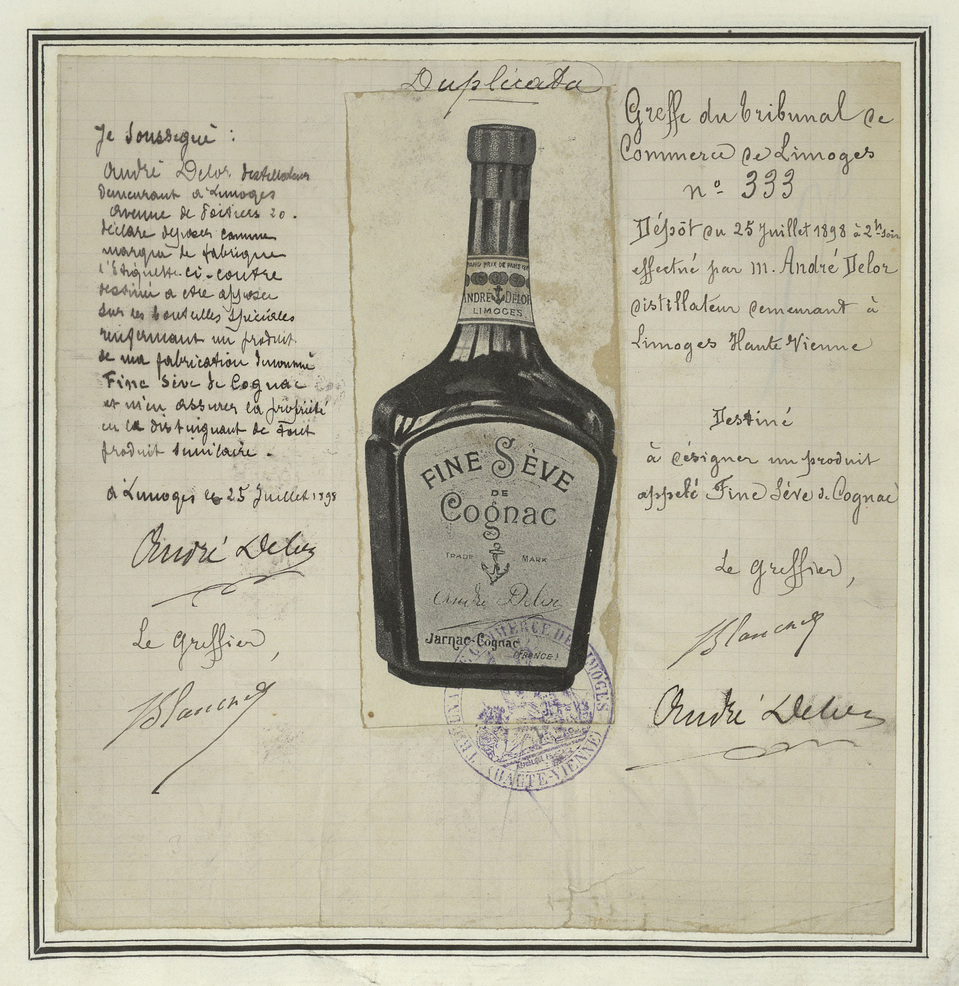 Duplicata
Je soussigné :
André Delor distillateur
demeurant à Limoges
avenue de Poitiers 20.
déclare déposer comme
marque de fabrique
l'Etiquette ci-contre
destiné a etre apposée
sur les bouteilles spéciales
renfermant un produit
de ma fabrication dénommé
Fine Sève de Cognac
et m'en assurer la propriété
en la distinguant de tout
produit similaire.
à Limoges le 25 Juillet 1898
André Delor
Le Greffier,
Blanchet
GRAND PRIX DE PARIS
ANDRÉ DELOR
LIMOGES
FINE SÈVE
DE
Cognac
TRADE MARK
André Delor
Jarnac-Cognac
(FRANCE)
TRIBUNAL DE COMMERCE DE LIMOGES
(HAUTE-VIENNE)
Greffe du Tribunal de
Commerce de Limoges
nº 333
Dépôt du 25 Juillet 1898 à 2h soir
effectué par M. André Delor
distillateur demeurant à
Limoges Haute Vienne
Destiné
à désigner un produit
appelé Fine Sève de Cognac
Le Greffier,
Blanchet
André Delor